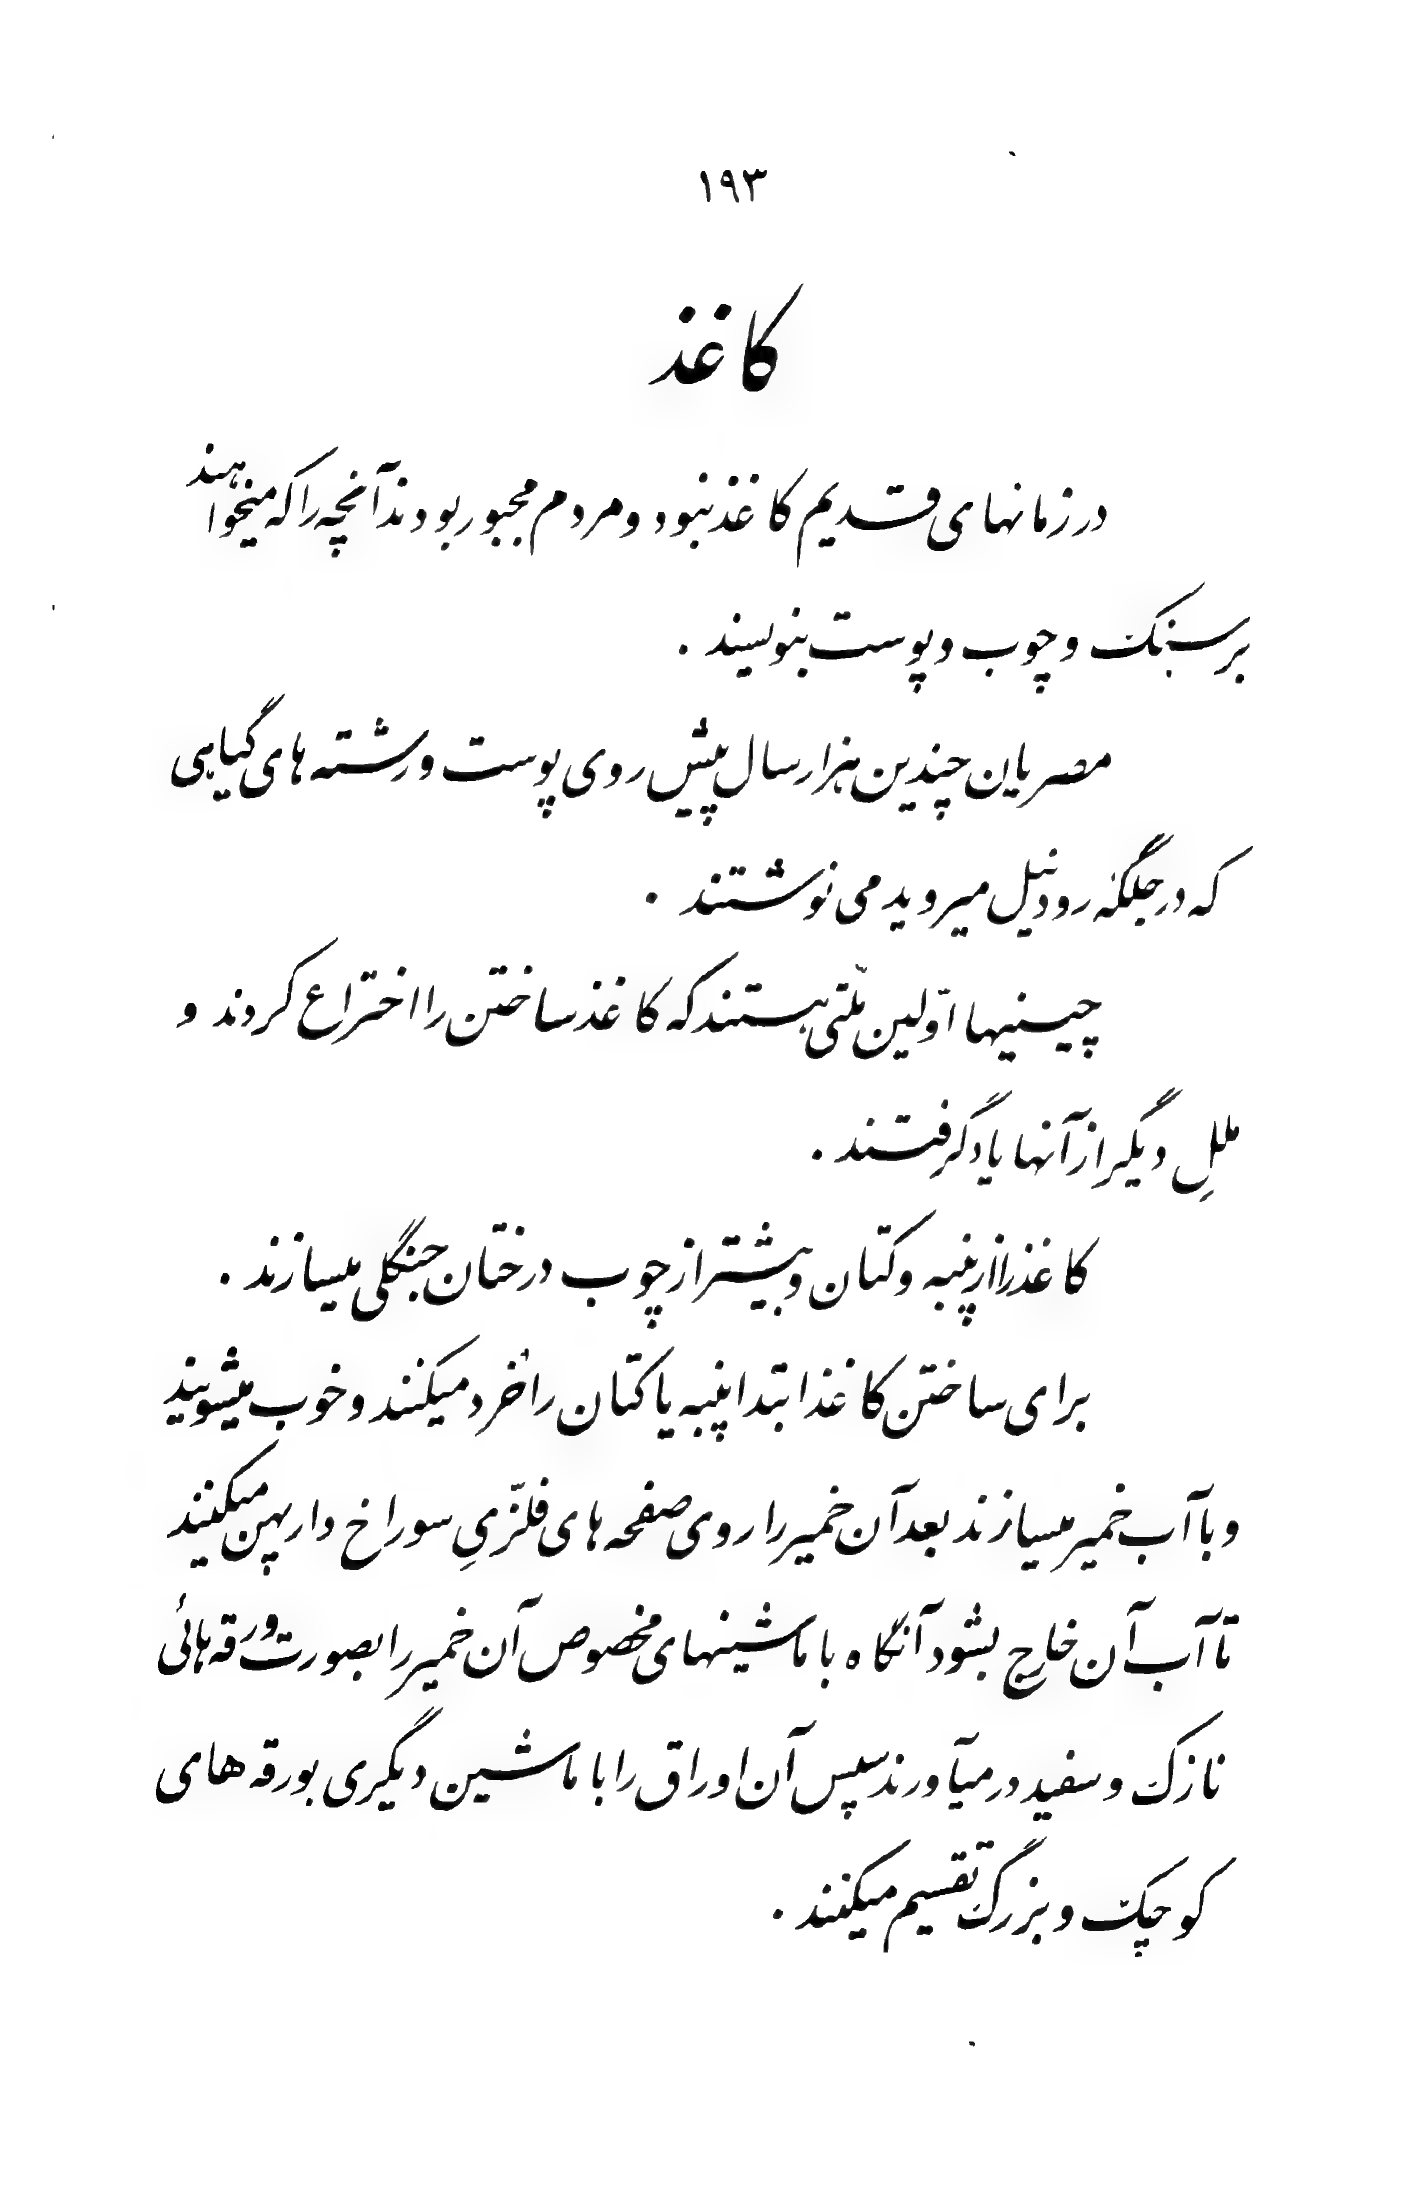 ۱۹۳
کاغذ
در زمانهای قدیم کاغذ نبود و مردم مجبور بودند آنچه را که میخواهند
بر سنگ و چوب و پوست بنویسند .
مصریان چندین هزار سال پیش روی پوست و رشته های گیاهی
که در جلگه رود نیل میروید می نوشتند .
چینیها اوّلین ملّتی هستند که کاغذ ساختن را اختراع کردند و
مللِ دیگر از آنها یاد گرفتند .
کاغذ را از پنبه و کتان و بیشتر از چوب درختان جنگلی میسازند .
برای ساختن کاغذ ابتدا پنبه یا کتان را خُرد میکنند و خوب میشویند
و با آب خمیر میسازند بعد آن خمیر را روی صفحه های فلزّیِ سوراخ دار پهن میکنند
تا آب آن خارج بشود آنگاه با ماشینهای مخصوص آن خمیر را بصورت ورقه هائی
نازک و سفید در میآورند سپس آن اوراق را با ماشین دیگری بورقه های
کوچک و بزرگ تقسیم میکنند .